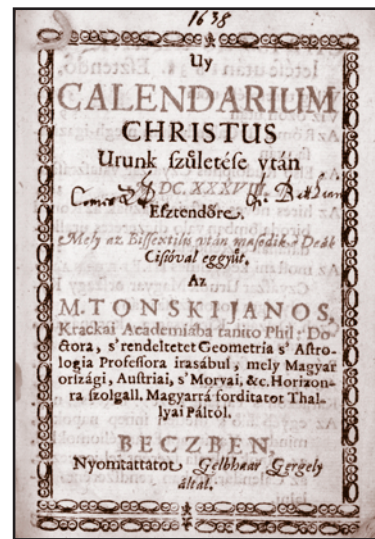 1638
Uy
CALENDARIUM
CHRISTUS
Urunk ſzületéſe vtán
M.DC.XXXVIII.
Eſztendőre.
Mely az Biſſextilis vtán maſodik. Deák
Ciſióval eggyüt.
Az
M. TONSKI JANOS,
Krackai Academiába tanito Phil: Do-
ctora, s' rendeltetet Geometria s' Aſtro-
logia Profeſſora irasábul, mely Magyar
orſzági, Auſtriai, s' Morvai, &c. Horizon-
ra ſzolgall. Magyarrá forditatot Thal-
lyai Páltól.
BECZBEN,
Nyomtattatot Gelbhaar Gergely
által.